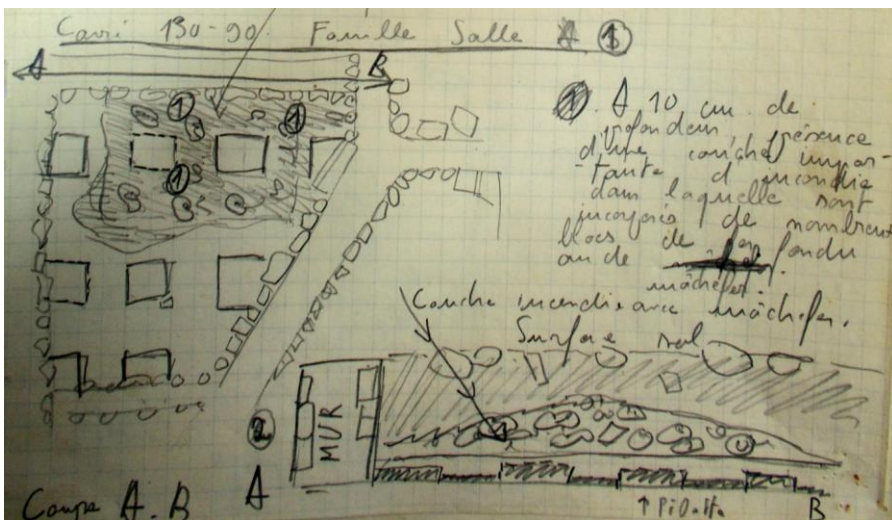 Carré 130-90. Famille Salle A ①
A B
① ① ①
①. A 10 cm. de
profondeur, présence
d'une couche impor-
-tante d'incendie
dans laquelle sont
incorporés de nombreux
blocs de fer fondu
ou de
mâchefer.
Couche incendie avec mâchefer.
Surface sol
②
MUR
A
Coupe A.B
↑ Pilette
B